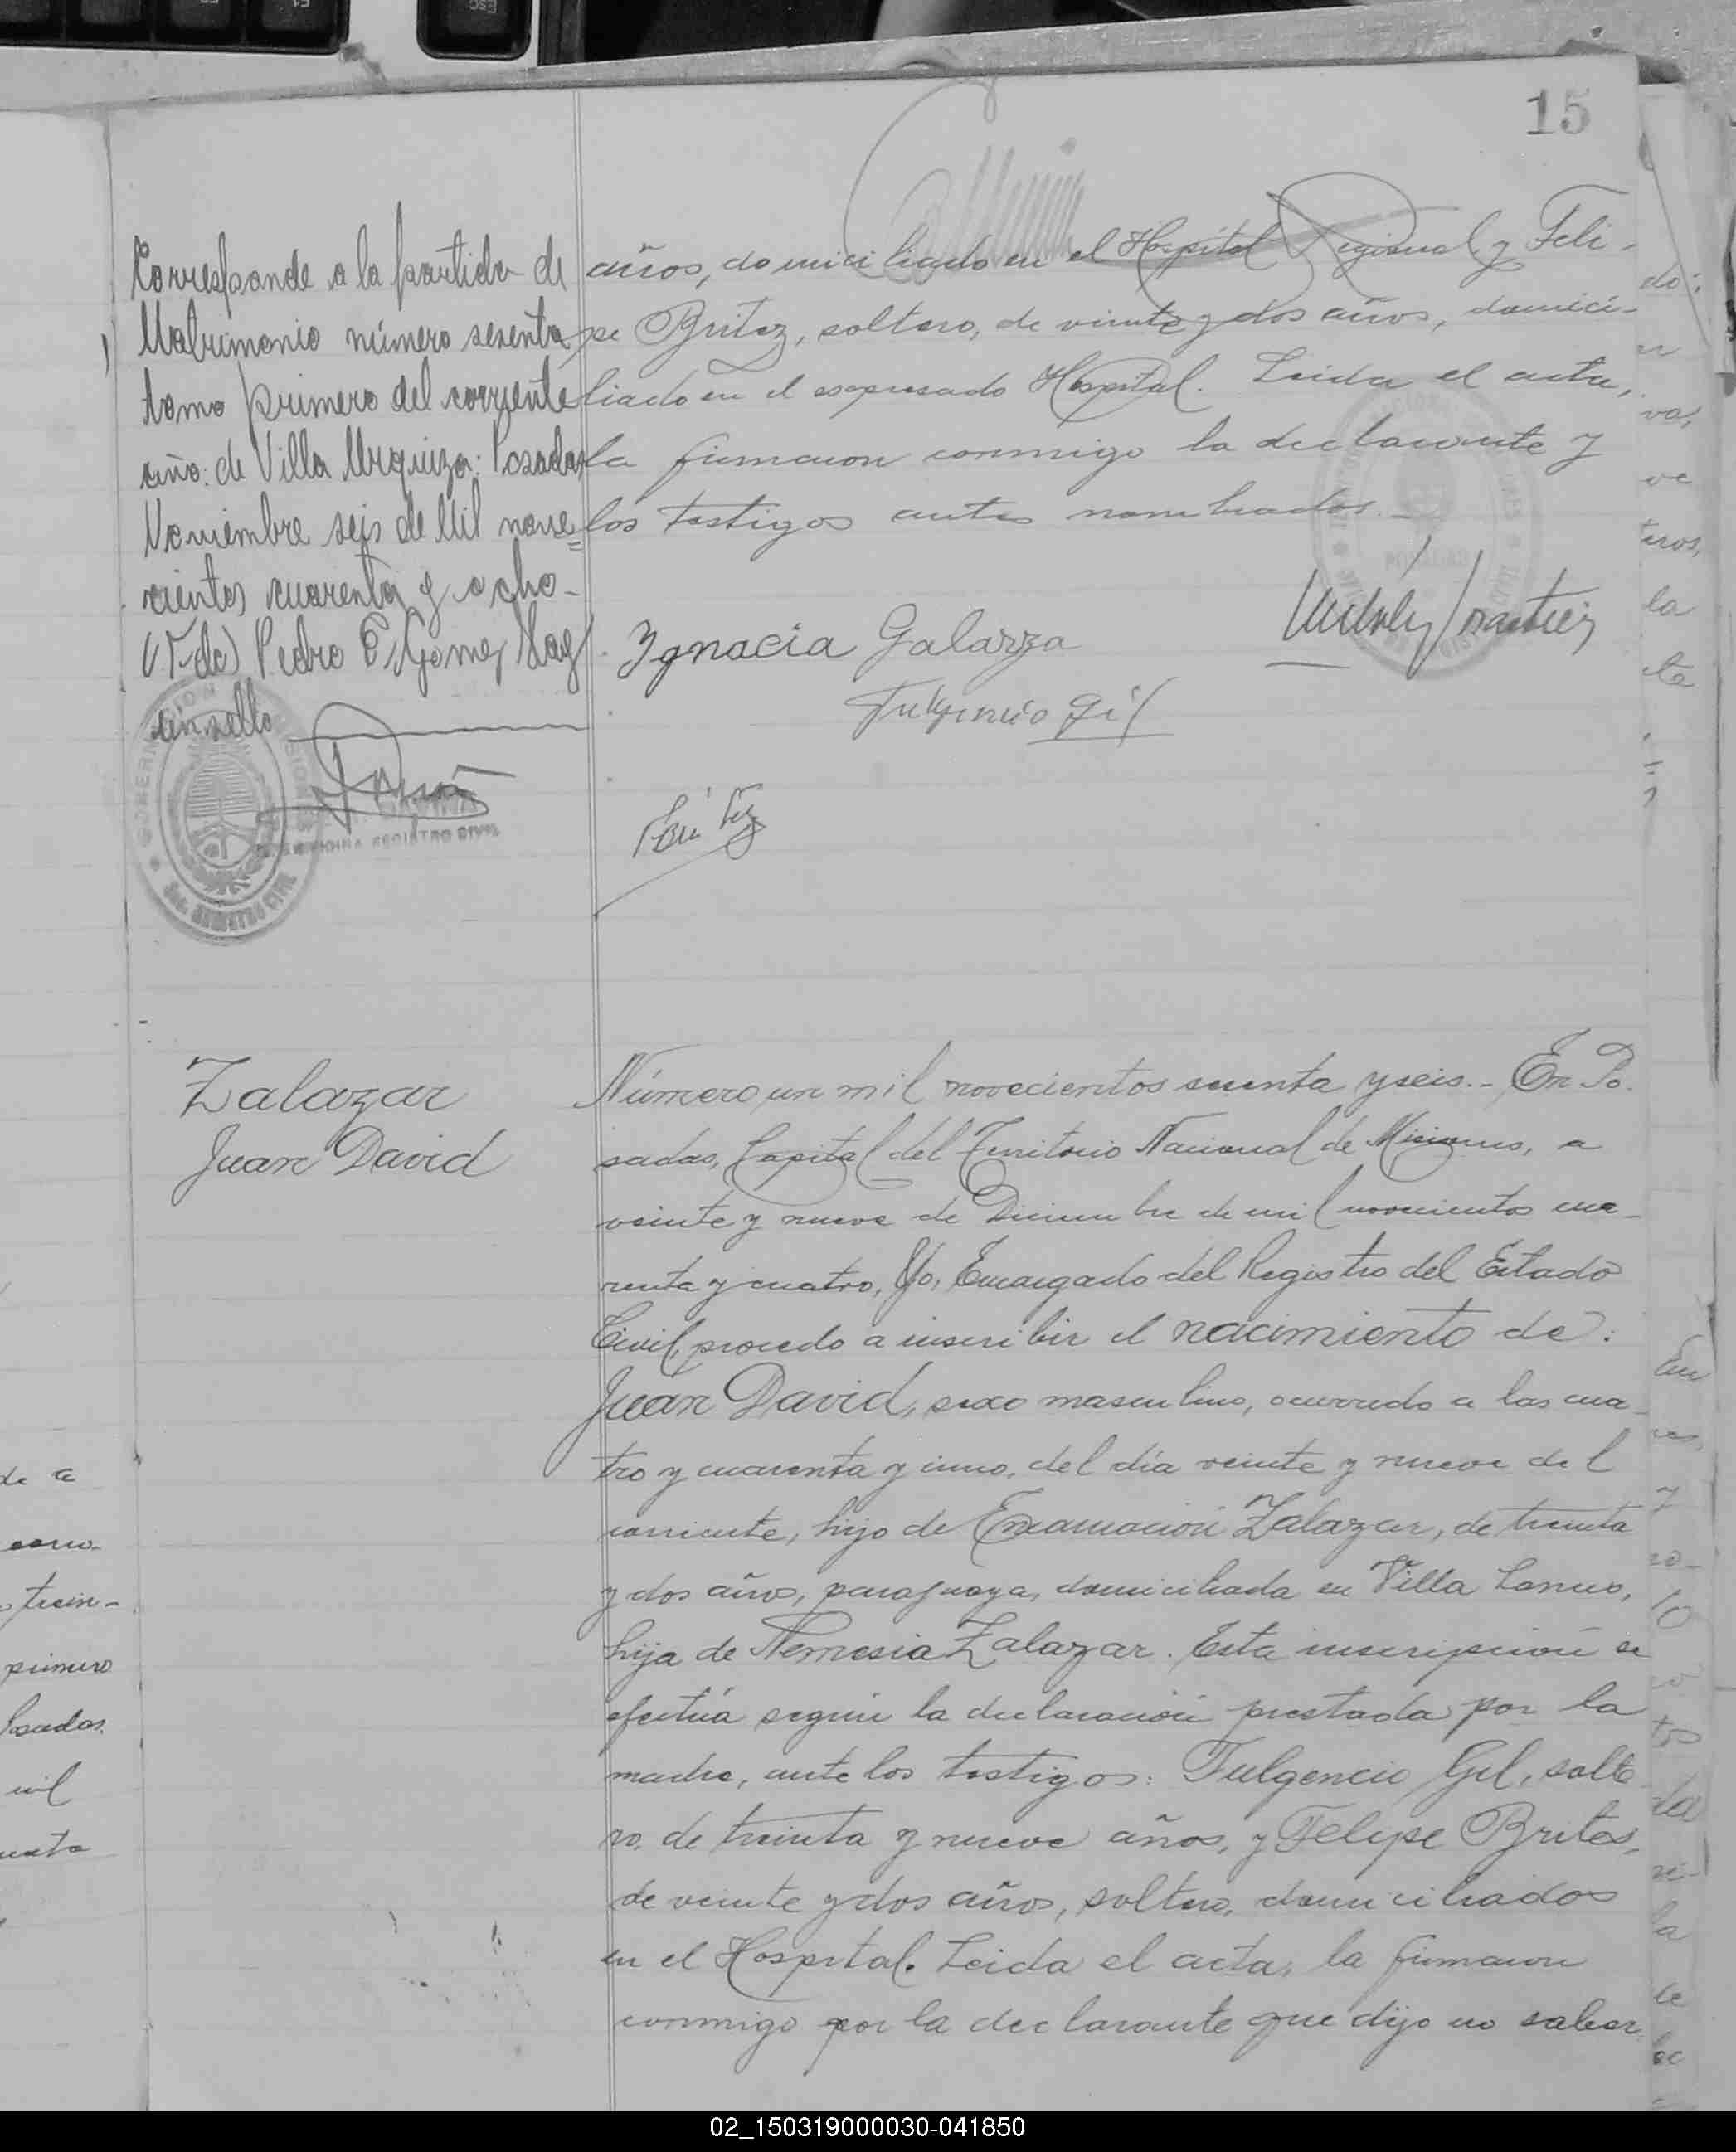 15
Corresponde a la partida de
Matrimonio número sesenta
tomo primero del corriente
año: de Villa Urquiza: Posadas
Noviembre seis de Mil nove=
cientos cuarenta y ocho-
(Fdo) Pedro E. Gomez Hay
un sello
GOBERNACION
REGISTRO CIVIL
años, domiciliado en el Hospital Regional y Feli-
pe Britez, soltero, de veinte y dos años, domici-
liado en el expresado Hospital. Leida el acta,
la firmaron conmigo la declarante y
los testigos antes nombrados.-
Ygnacia Galarza
Fulgencio Gil
Britez
Zalazar
Juan David
Número un mil novecientos sesenta y seis.- En Po-
sadas, Capital del Territorio Nacional de Misiones, a
veinte y nueve de Diciembre de mil novecientos cua-
renta y cuatro, Yo, Encargado del Registro del Estado
Civil, procedo a inscribir el nacimiento de:
Juan David, sexo masculino, ocurrido a las cua-
tro y cuarenta y cinco, del día veinte y nueve del
corriente, hijo de Encarnación Zalazar, de treinta
y dos años, paraguaya, domiciliada en Villa Lanus,
hija de Nemesia Zalazar. Esta inscripción se
efectúa según la declaración prestada por la
madre, ante los testigos: Fulgencio Gil, solte-
ro, de treinta y nueve años, y Felipe Brites,
de veinte y dos años, soltero, domiciliados
en el Hospital. Leida el acta, la firmaron
conmigo por la declarante que dijo no saber
02_150319000030-041850